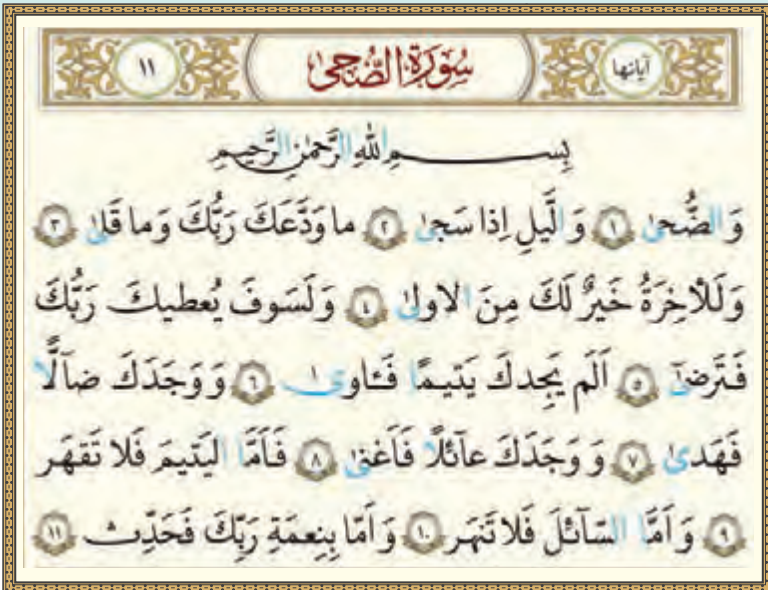 آیاتها سُورَةُ الضُّحىٰ ١١
بِسـمِ اللّٰهِ الرَّحمٰنِ الرَّحيمِ
وَ الضُّحىٰ ١ وَ الَّيلِ اِذا سَجىٰ ٢ ما وَدَّعَكَ رَبُّكَ وَ ما قَلىٰ ٣
وَ لَلآخِرَةُ خَيرٌ لَكَ مِنَ الاولىٰ ٤ وَ لَسَوفَ يُعطيكَ رَبُّكَ
فَتَرضىٰٓ ٥ اَلَم يَجِدكَ يَتيمًا فَـٔاوىٰ ٦ وَ وَجَدَكَ ضآلًّا
فَهَدىٰ ٧ وَ وَجَدَكَ عآئلًا فَاَغنىٰ ٨ فَاَمَّا اليَتيمَ فَلا تَقهَر
٩ وَ اَمَّا السّآئلَ فَلا تَنهَر ١٠ وَ اَمّا بِنِعمَةِ رَبِّكَ فَحَدِّث ١١